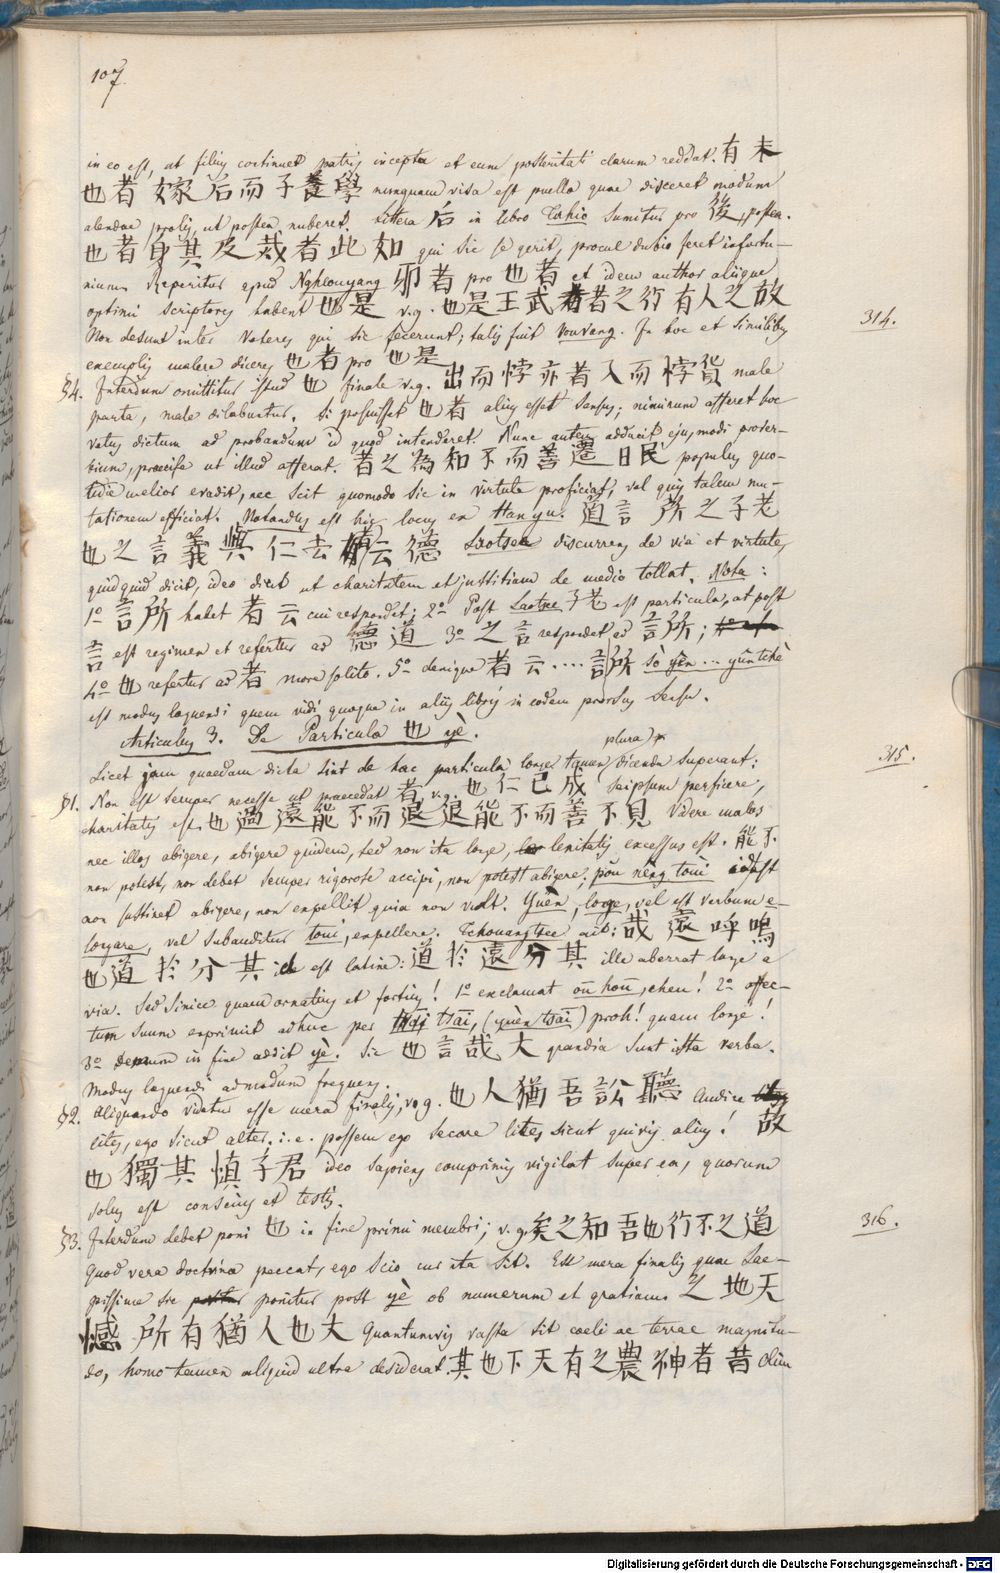 107
in eo est, ut filius continuet patris incepta et eum posteritati clarum reddat. 未有
學養子而后嫁者也 nunquam visa est puella quae disceret modum
alendae prolis, ut postea nuberet. Littera 后 in libro Tahio sumitur pro 後, postea.
如此者烖及其身者也 qui sic se gerit, procul dubio feret infortu-
nium. Reperitur apud Ngheouyang 者邪 pro 者也 et idem author aliique
optimi scriptores habent 是也 v.g. 故之人有行之者武王是也.
Non desunt inter Veteres qui sic fecerunt; talis fuit Vouvang. In hoc et similibus
exemplis malere dicere 者也 pro 是也
§4. Interdum omittitur istud 也 finale v.g. 貨悖而入者亦悖而出 male
parta, male dilabuntur. Si posuisset 者也 alius esset sensus; nimirum afferet hoc
vetus dictum ad probandum id quod intenderet. Nunc autem adducit ejusmodi prover-
bium, praecise ut illud afferat. 民日遷善而不知為之者 populus quo-
tidie melior evadit, nec scit quomodo sic in virtute proficiat, vel quis talem mu-
tationem efficiat. Notandus est hic locus ex Hanyu. 老子之所言道
德云者去仁與義言之也 Laotsee discurrens de via et virtute,
quidquid dicit, ideo dicit ut charitatem et justitiam de medio tollat. Nota:
1º 所言 habet 云者 cui respondet; 2º Post Laotse 老子 est particula, at post
言 est regimen et refertur ad 道德 3º 言之 respondet ad 所言;
4º 也 refertur ad 者 more solito. 5º denique 所言.... 云者 sò yên ... yûn tchè
est modus loquendi quem vidi quoque in aliis libris in eodem prorsus sensu.
Articulus 3. De Particula 也 yè.
plura
Licet jam quaedam dicta sint de hac particula longe tamen dicenda superant:
§1. Non est semper necesse ut praecedat 者, v.g. 成己仁也 seipsum perficere,
charitatis est. 見不善而不能退退而不能遠過也 Videre malos
nec illos abigere, abigere quidem, sed non ita longe, lenitatis excessus est. 不能
non potest, non debet semper rigorose accipi, non potest abigere, poŭ nêng touì idest
non sustinet abigere, non expellit quia non vult. Yuèn, longe, vel est verbum e-
longare, vel subauditur touì, expellere. Tchouangtsee ait: 嗚呼遠哉
其分於道也 id est latine: 其分遠於道 ille aberrat longe a
via. Sed Sinice quam ornatius et fortius! 1º exclamat oū hoū, eheu! 2º affec-
tum suum exprimit adhuc per tsāi, (yuèn tsāi) proh! quam longe!
3º demum in fine addit yè. Sic 大哉言也 grandia sunt ista verba.
Modus loquendi admodum frequens.
§2. Aliquando videtur esse mera finalis, v.g. 聽訟吾猶人也 Audire
lites, ego sicut alter. i.e. possem ego secare lites sicut quivis alius! 故
君子慎其獨也 ideo sapiens comprimis vigilat super ea, quorum
solus est conscius et testis.
§3. Interdum debet poni 也 in fine primi membri; v.g. 道之不行也吾知之矣
Quod vera doctrina peccat, ego scio cur ita sit. Est mera finalis quae sae-
pissime sic ponitur post yè ob numerum et gratiam. 天地之
大也人猶有所憾 Quantumvis vasta sit coeli ac terrae magnitu-
do, homo tamen aliquid ultra desiderat. 昔者神農之有天下也其 Olim
314.
315.
316.
Digitalisierung gefördert durch die Deutsche Forschungsgemeinschaft - DFG